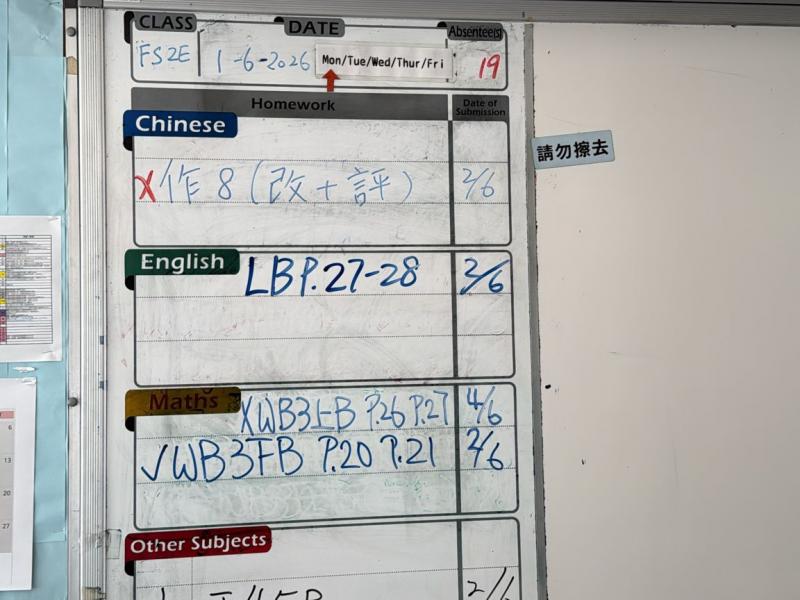 CLASS DATE Absentee(s)
FS2E 1-6-2026 Mon/Tue/Wed/Thur/Fri 19
Homework Date of Submission
Chinese
X作 8 (改 + 評) 2/6
請勿擦去
English
LB P.27-28 2/6
Maths
XWB3上B P.26 P.27 4/6
✓WB3下B P.20 P.21 2/6
Other Subjects
2/6
6
13
20
27